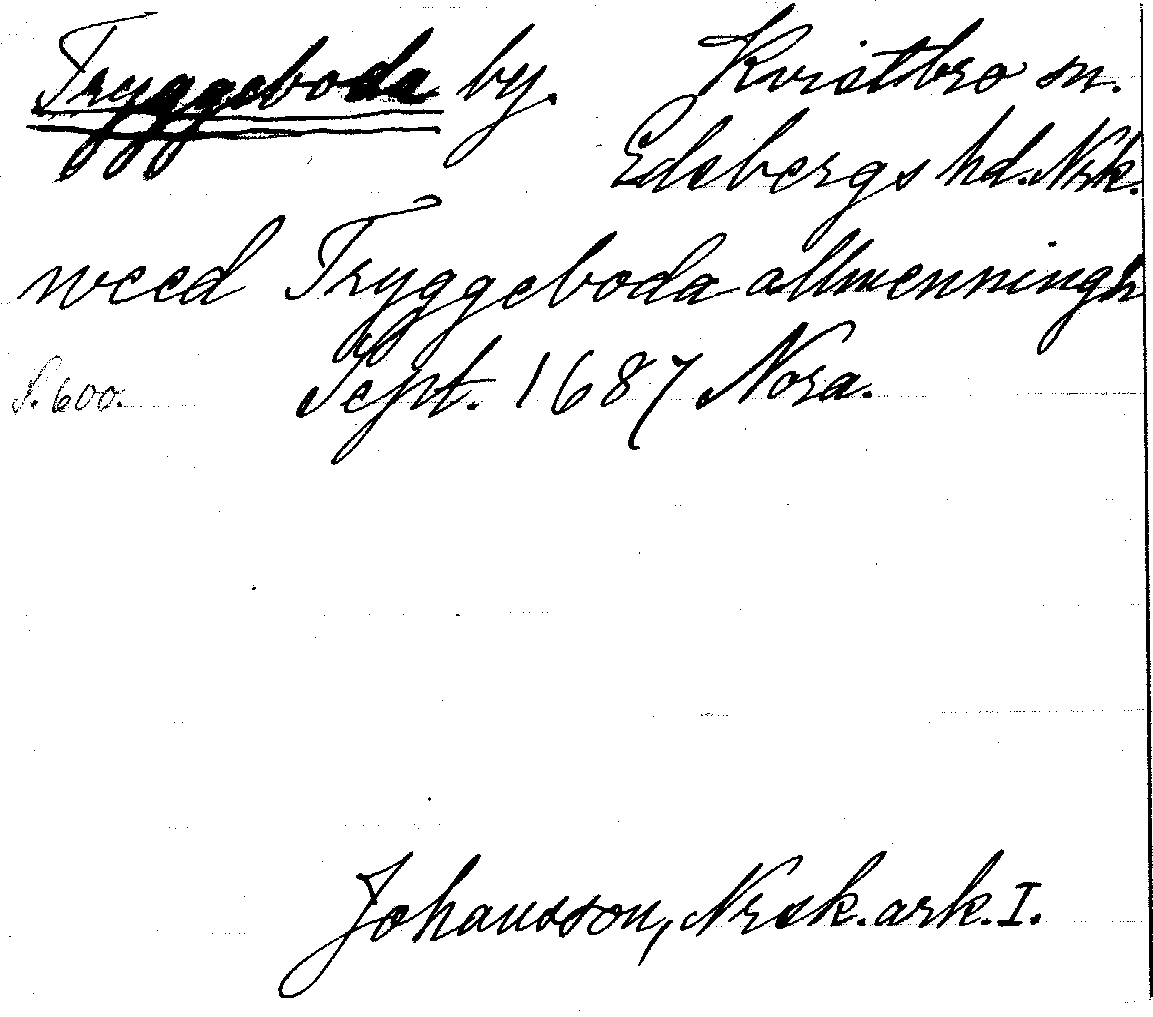 Tryggeboda by. Kvistbro sn.
Edsbergs hd. Nrk.
weed Tryggeboda allmenningh
S. 600. Sept. 1687 Nora.
Johansson, Nrsk. ark. I.